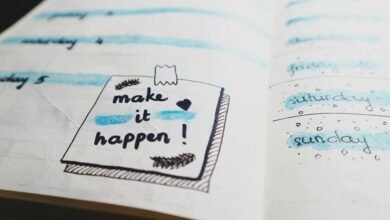 saturday 4
sunday 5
make
it
happen!
friday 10
saturday
sunday